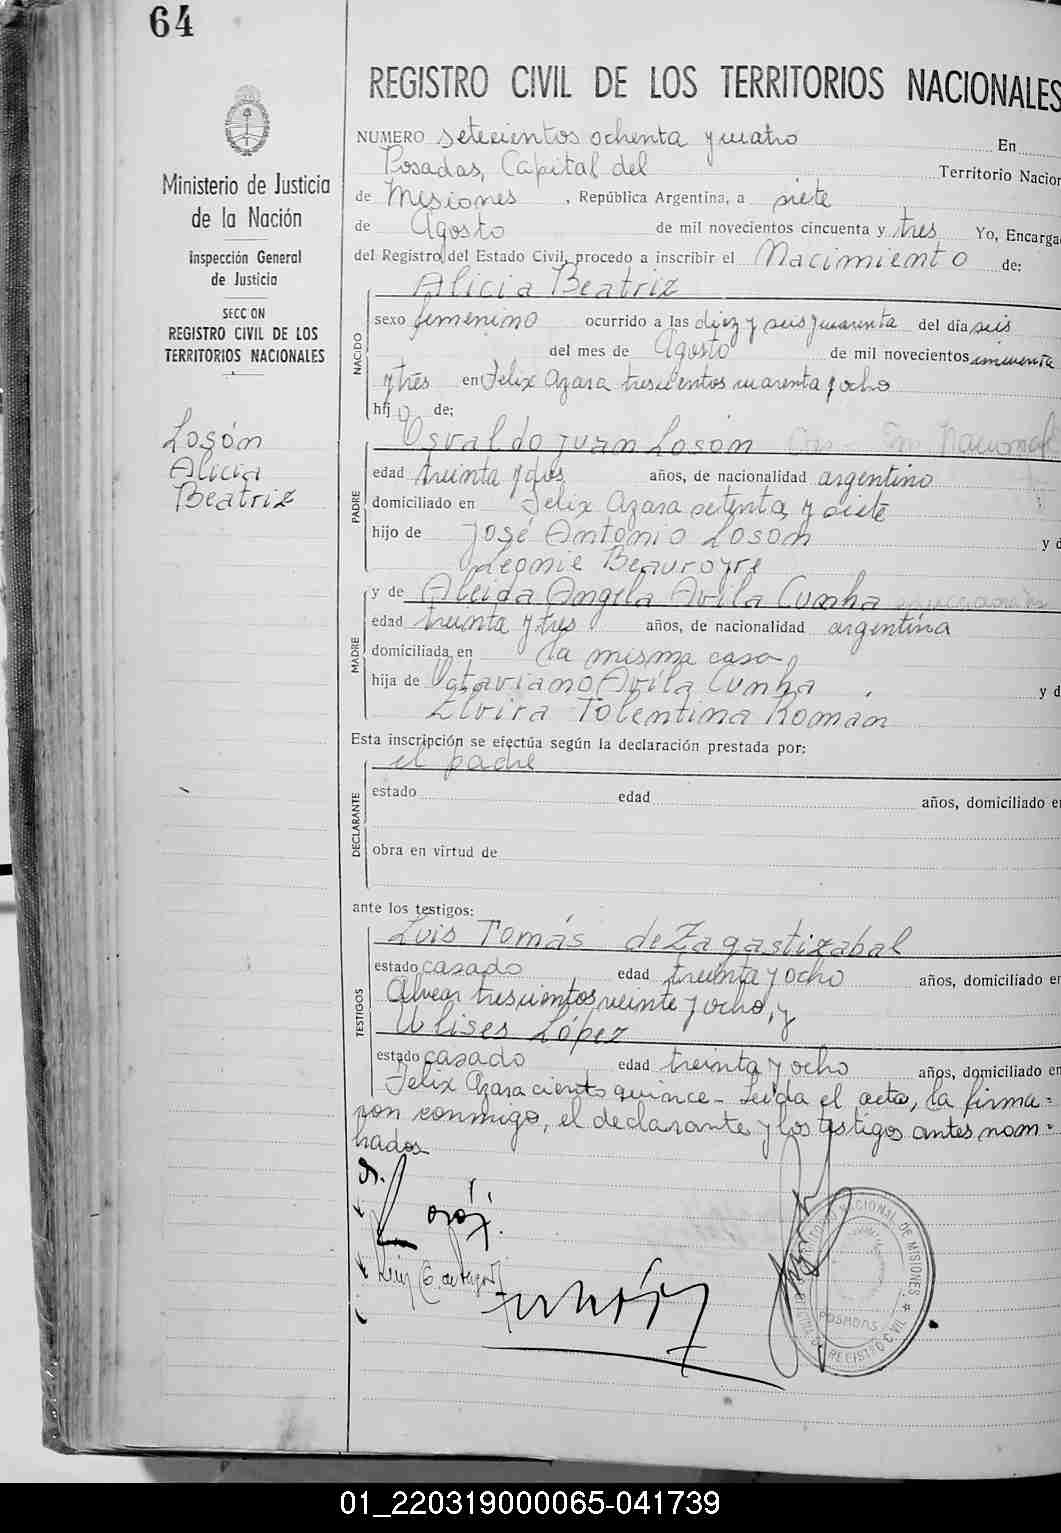 64
REGISTRO CIVIL DE LOS TERRITORIOS NACIONALES
Ministerio de Justicia
de la Nación
Inspección General
de Justicia
SECCION
REGISTRO CIVIL DE LOS
TERRITORIOS NACIONALES
Losón
Alicia
Beatriz
NUMERO setecientos ochenta y cuatro En
Posadas, Capital del Territorio Nacion
de Misiones, República Argentina, a siete
de Agosto de mil novecientos cincuenta y tres Yo, Encarga
del Registro del Estado Civil, procedo a inscribir el Nacimiento de:
Alicia Beatriz
NACIDO
sexo femenino ocurrido a las diez y seis y cuarenta del día seis
del mes de Agosto de mil novecientos cincuenta
y tres en Felix Azara trescientos cuarenta y ocho
hijo de:
PADRE
Osvaldo Juan Losón
edad treinta y dos años, de nacionalidad argentino
domiciliado en Felix Azara setenta y siete
hijo de José Antonio Loson y d
Leonie Beauroyre
MADRE
y de Aleida Angela Avila Cunha
edad treinta y tres años, de nacionalidad argentina
domiciliada en la misma casa,
hija de Octaviano Avila Cunha, y d
Elvira Tolentina Román
Esta inscripción se efectúa según la declaración prestada por:
el padre
DECLARANTE
estado edad años, domiciliado en
obra en virtud de
ante los testigos:
TESTIGOS
Luis Tomás de Zagastizabal
estado casado edad treinta y ocho años, domiciliado en
Alvear trescientos veinte y ocho, y
Ulises López
estado casado edad treinta y ocho años, domiciliado en
Felix Azara ciento quince - Leída el acta, la firma=
ron conmigo, el declarante y los testigos antes nom=
brados
TERRITORIO NACIONAL DE MISIONES
POSADAS
OFICINA DE REGISTRO CIVIL
01_220319000065-041739